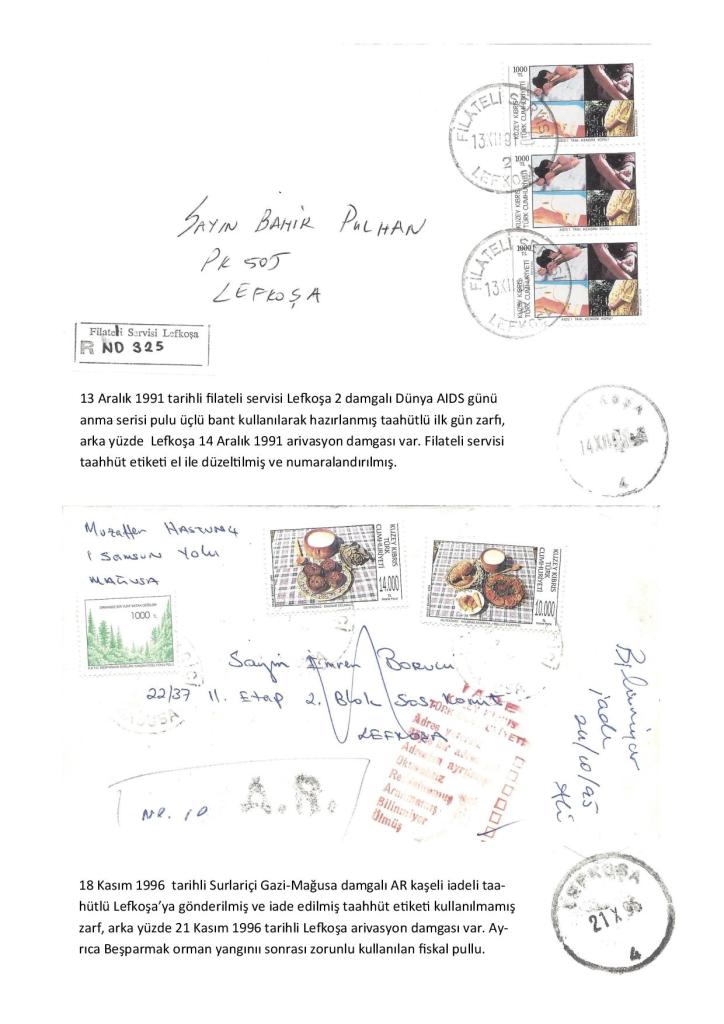 1000
TL
KUZEY KIBRIS
TÜRK CUMHURİYETİ
FİLATELİ SERVİSİ
13 XII 91
2
LEFKOŞA
1000
TL
KUZEY KIBRIS
TÜRK CUMHURİYETİ
1000
TL
KUZEY KIBRIS
TÜRK CUMHURİYETİ
FİLATELİ SERVİSİ
13 XII
LEFKOŞA
SAYIN BAHİR PULHAN
PK 505
LEFKOŞA
Filateli Servisi Lefkoşa
R NO 325
13 Aralık 1991 tarihli filateli servisi Lefkoşa 2 damgalı Dünya AIDS günü
anma serisi pulu üçlü bant kullanılarak hazırlanmış taahütlü ilk gün zarfı,
arka yüzde Lefkoşa 14 Aralık 1991 arivasyon damgası var. Filateli servisi
taahhüt etiketi el ile düzeltilmiş ve numaralandırılmış.
LEFKOŞA
14 XII
4
Muzaffer
1 Samsun Yolu
MAĞUSA
1000 TL
KUZEY KIBRIS
TÜRK
CUMHURİYETİ
14.000
KUZEY KIBRIS
TÜRK
CUMHURİYETİ
10.000
Sayın İmren BORUCU
22/37 11. Etap 2. Blok Sos. Konut
LEFKOŞA
İADE
Adres
Adresten ayrılmış
Aranmamış
Bilinmiyor
Ölmüş
Bilinmiyor
iade
24/10/95
Ali
NR. 10
A.R.
18 Kasım 1996 tarihli Surlariçi Gazi-Mağusa damgalı AR kaşeli iadeli taa-
hütlü Lefkoşa’ya gönderilmiş ve iade edilmiş taahhüt etiketi kullanılmamış
zarf, arka yüzde 21 Kasım 1996 tarihli Lefkoşa arivasyon damgası var. Ay-
rıca Beşparmak orman yangınıı sonrası zorunlu kullanılan fiskal pullu.
LEFKOŞA
21 X
4